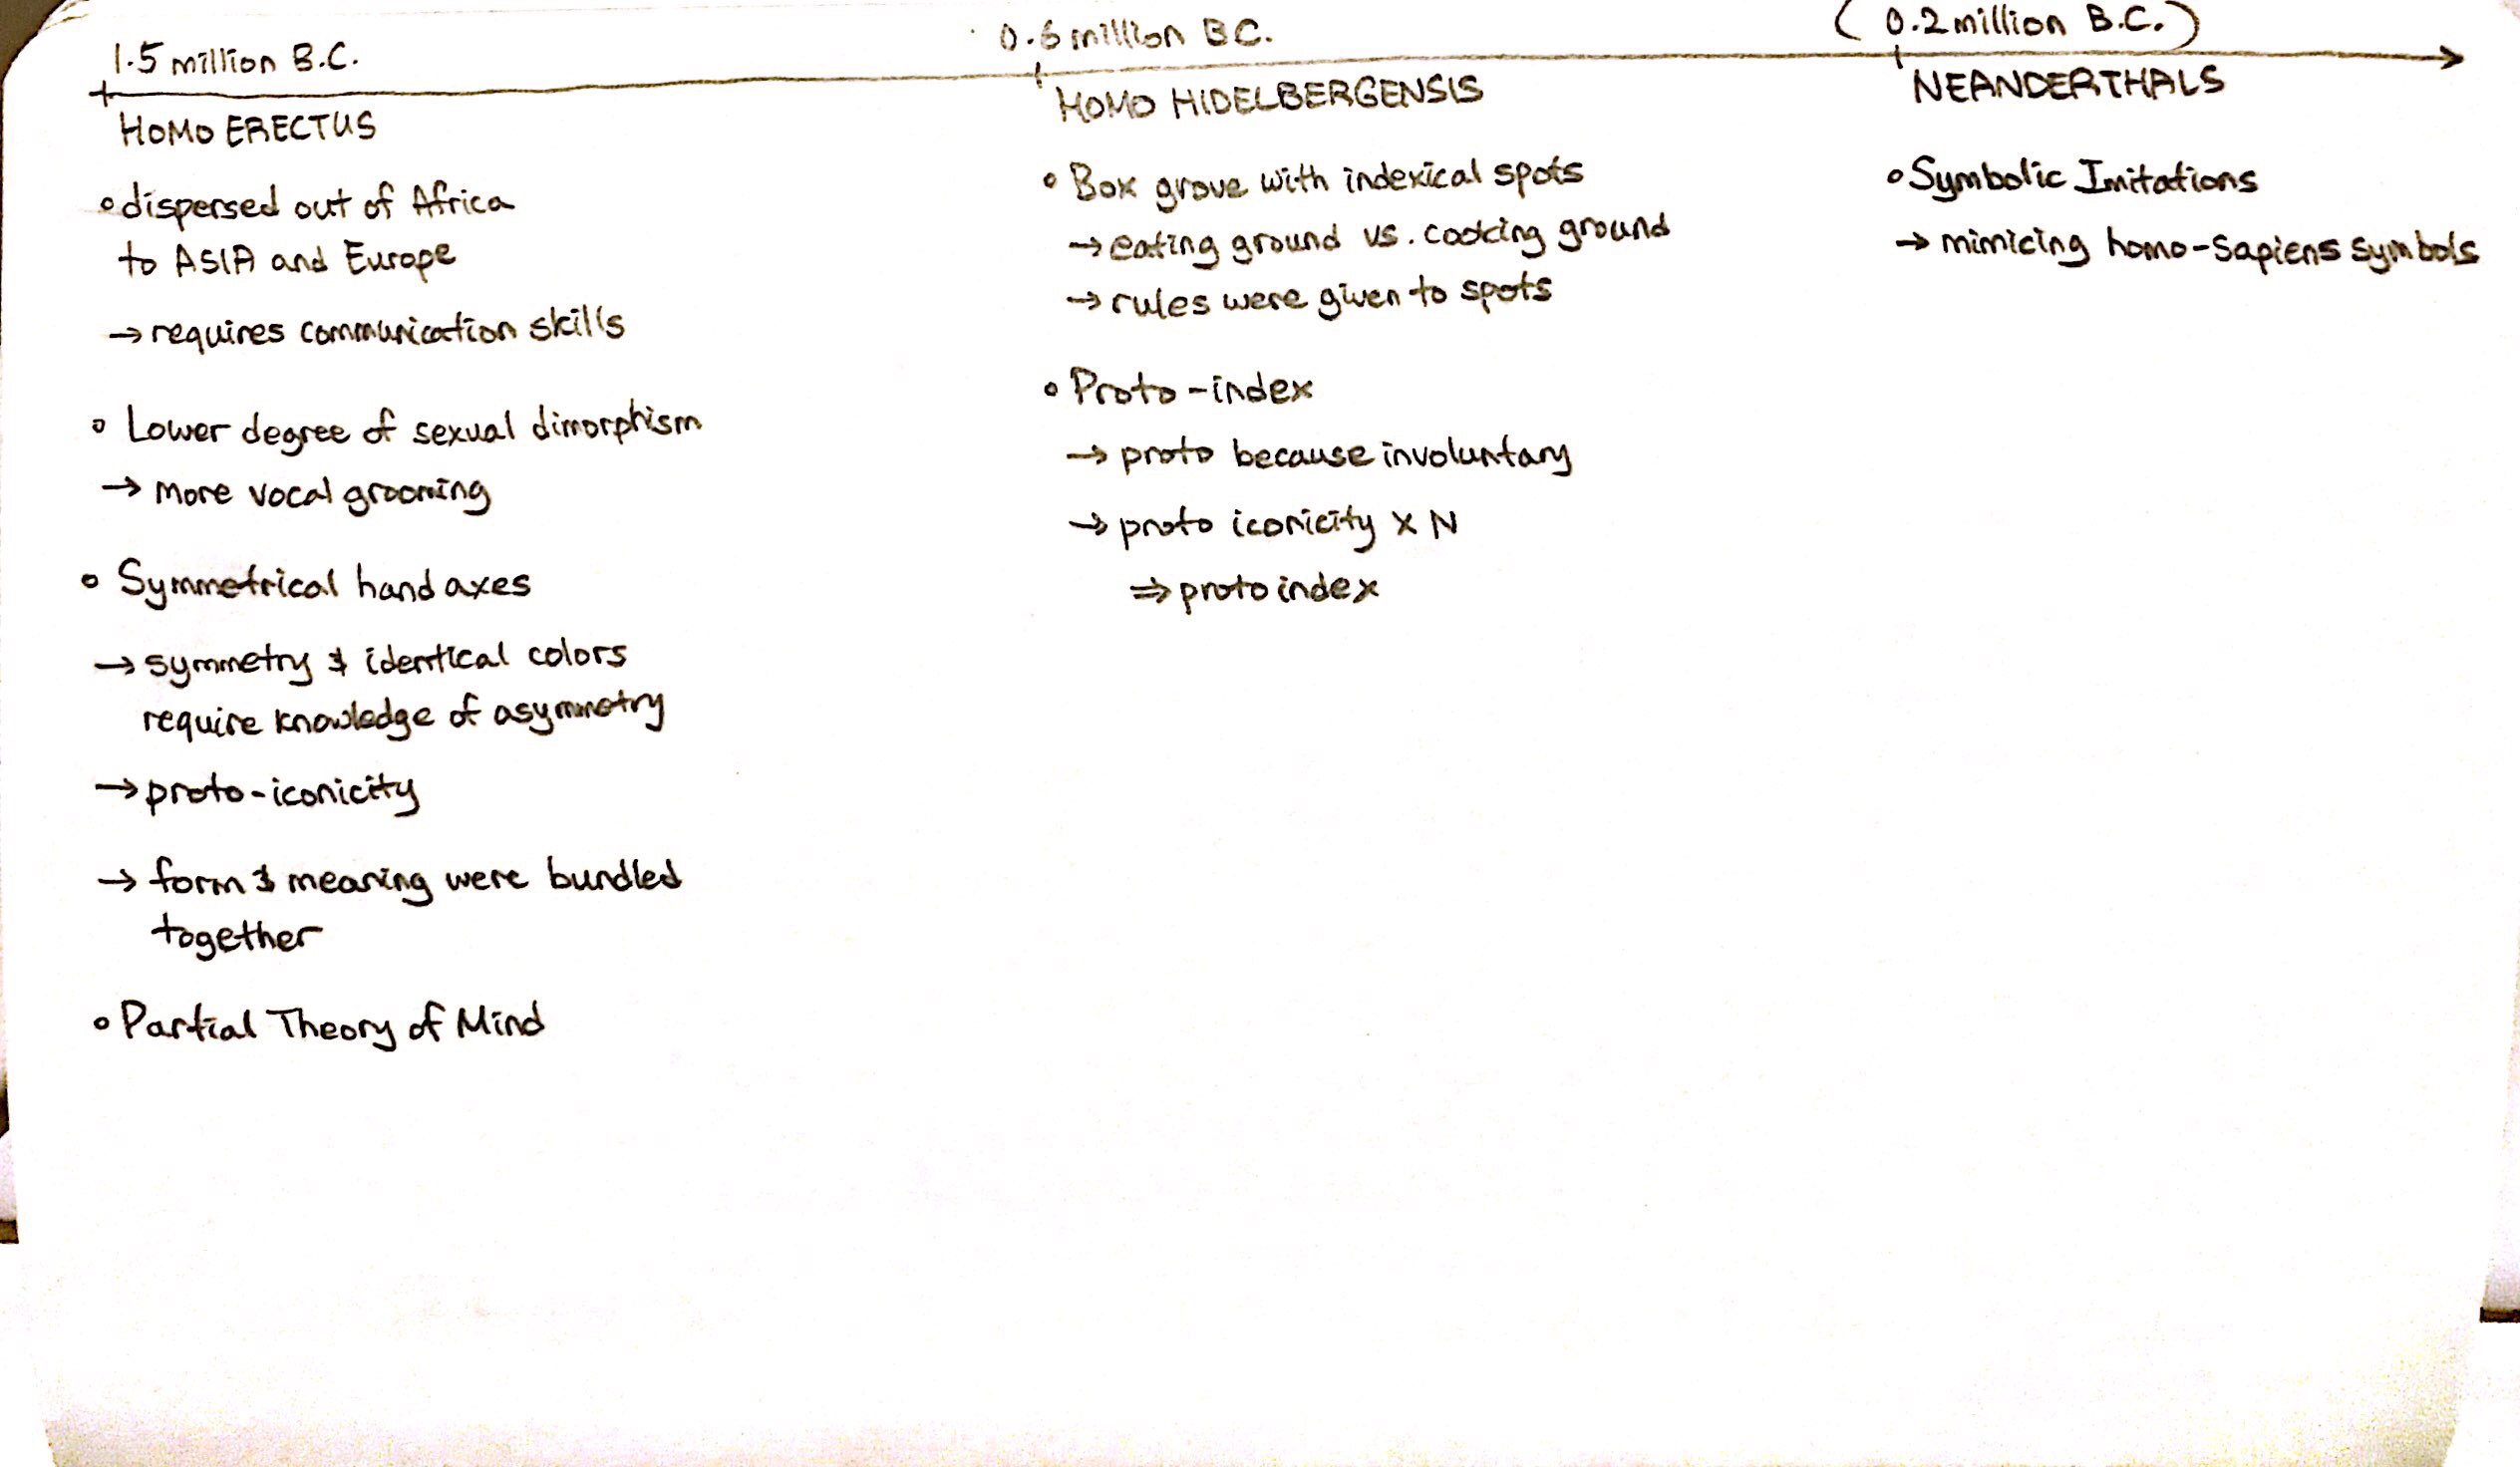 1.5 million B.C.
HOMO ERECTUS
∘ dispersed out of Africa
to ASIA and Europe
→ requires communication skills
∘ Lower degree of sexual dimorphism
→ more vocal grooming
∘ Symmetrical hand axes
→ symmetry & identical colors
require knowledge of asymmetry
→ proto-iconicity
→ form & meaning were bundled
together
∘ Partial Theory of Mind
0.6 million B.C.
HOMO HIDELBERGENSIS
∘ Box grove with indexical spots
→ eating ground vs. cooking ground
→ rules were given to spots
∘ Proto-index
→ proto because involuntary
→ proto iconicity x N
⇒ proto index
(0.2 million B.C.)
NEANDERTHALS
∘ Symbolic Imitations
→ mimicing homo-sapiens symbols